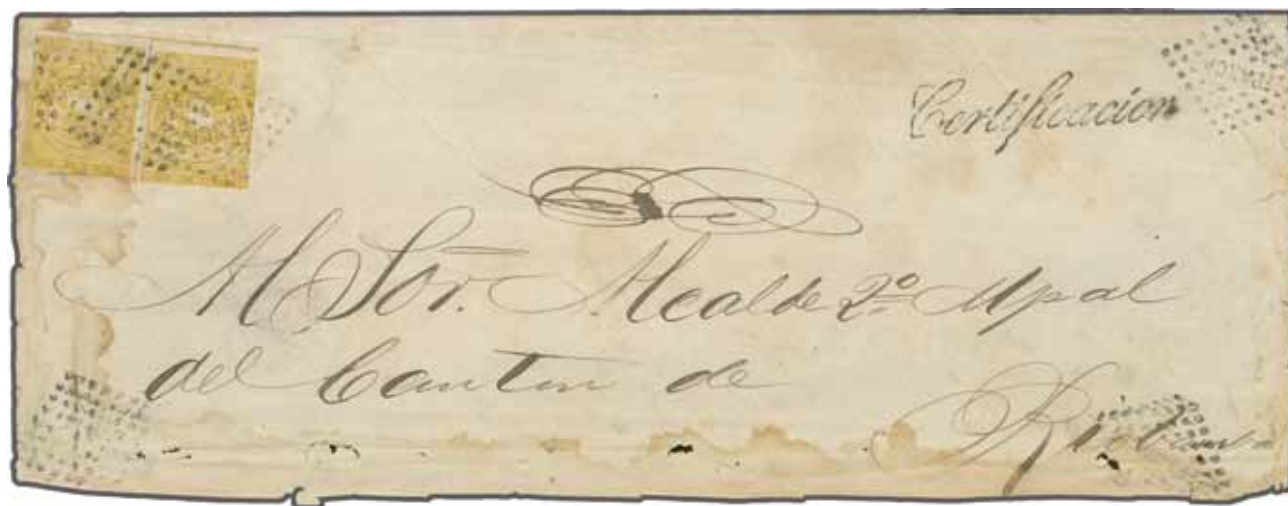 Certificacion
Al Sor. Alcalde 2º Mpal
del Canton de